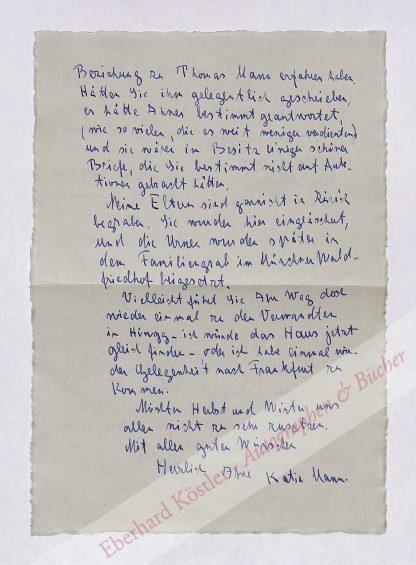 Beziehung zu Thomas Mann erfahren haben.
Hätten Sie ihm gelegentlich geschrieben,
er hätte Ihnen bestimmt geantwortet,
(wie so vielen, die es weit weniger verdienten)
und sie wären im Besitz einiger schöner
Briefe, die Sie bestimmt nicht auf Auk-
tionen gebracht hätten.
Meine Eltern sind garnicht in Zürich
begraben. Sie wurden hier eingeäschert,
und die Urnen wurden später in
dem Familiengrab im Münchner Wald-
friedhof beigesetzt.
Vielleicht führt Sie Ihr Weg doch
wieder einmal zu den Verwandten
in Höngg – ich würde das Haus jetzt
gleich finden – oder ich habe einmal wie-
der Gelegenheit nach Frankfurt zu
kommen.
Möchten Herbst und Winter uns
allen nicht zu sehr zusetzen.
Mit allen guten Wünschen
Herzlich Ihre Katia Mann.
Eberhard Köstler Autographen & Bücher